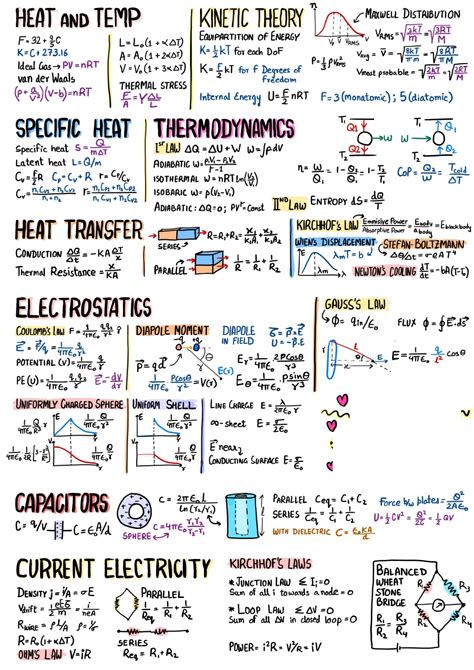 HEAT AND TEMP
F=32+9/5C
K=C+273.16
Ideal Gas→PV=nRT
van der Waals
(p+a/V²)(V-b)=nRT
L=L₀(1+αΔT)
A=A₀(1+2αΔT)
V=V₀(1+3αΔT)
THERMAL STRESS
F/A=YΔL/L
KINETIC THEORY
EQUIPARTITION OF ENERGY
K=½kT for each DoF
K=F/2kT for F Degrees of Freedom
Internal Energy U=F/2nRT
MAXWELL DISTRIBUTION
Vp V̄ VRMS
P=⅓ρV²RMS
VRMS=√3kT/m=√3RT/M
Vavg=√8kT/πm=√8RT/πM
Vmost probable=√2kT/m=√2RT/M
F=3(monatomic); 5(diatomic)
SPECIFIC HEAT
Specific heat S=Q/mΔT
Latent heat L=Q/m
Cv=F/2R Cp=Cv+R r=Cp/Cv
THERMODYNAMICS
Iˢᵗ LAW ΔQ=ΔU+W W=∫pdV
ISOTHERMAL W=nRTln(V₂/V₁)
ISOBARIC W=p(V₂-V₁)
ADIABATIC: ΔQ=0; PVʳ=Const
T₁ Q1 W Q2 T₂
T₁ Q1 W Q2 T₂
n=W/Q₁=1-Q₂/Q₁=1-T₂/T₁
CoP=Q₂/W=Tcold/ΔT
IIⁿᵈ LAW ENTROPY dS=dQ/T
HEAT TRANSFER
CONDUCTION ΔQ/Δt=-KAΔT/x
Thermal Resistance=x/KA
SERIES
R=R₁+R₂=x₁/K₁A₁+x₂/K₂A₂
PARALLEL
1/R=1/R₁+1/R₂
KIRCHHOF'S LAW Emmisive Power/Absorptive Power=Ebody/abody=Eblackbody
WIEN'S DISPLACEMENT
λmT=b
STEFAN-BOLTZMANN:
ΔQ/Δt=σeAT⁴
NEWTON'S COOLING dT/dt=-bA(T-T₀)
ELECTROSTATICS
COULOMB'S LAW F=1/4πE₀ q₁q₂/r² r̂
E⃗=F⃗/q=1/4πE₀ q/r²
POTENTIAL (V)=1/4πE₀ q/r
PE (U)=1/4πE₀ q₁q₂/r E⃗=-dV/dr
DIAPOLE MOMENT
p⃗=qd⃗
1/4πE₀ pcosθ/r²=V(r)
E(r)
DIAPOLE IN FIELD
τ⃗=p⃗xE⃗
U=-p⃗·E⃗
Er=1/4πE₀ 2pcosθ/r³
Eθ=1/4πE₀ psinθ/r³
GAUSS'S LAW
ϕ=qin/E₀
FLUX ϕ=∮E⃗.dS⃗
E=1/4πE₀ q/r² cosθ
UNIFORMLY CHARGED SPHERE
UNIFORM SHELL
LINE CHARGE E=λ/2πE₀r
∞-sheet E=σ/2E₀
E⃗ near
CONDUCTING SURFACE E=σ/E₀
CAPACITORS
C=q/V C=E₀A/d
C=2πE₀l/ln(r₂/r₁)
C=4πE₀ r₁r₂/r₂-r₁
SPHERE
PARALLEL Ceq=C₁+C₂
SERIES 1/Ceq=1/C₁+1/C₂
WITH DIELECTRIC C=E₀KA/d
Force b/w plates=Q²/2AE₀
U=½CV²=Q²/2C=½QV
CURRENT ELECTRICITY
DENSITY j=i/A=σE
Rwire=ρl/A
R=R₀(1+αΔT)
OHM'S LAW V=iR
PARALLEL
1/Req=1/R₁+1/R₂
SERIES
Req=R₁+R₂
KIRCHHOF'S LAWS
*JUNCTION LAW ≤Ii=0
Sum of all i towards a node=0
*LOOP LAW ≤ΔV=0
Sum of all ΔV in closed loop=0
POWER=i²R=V²/R=iV
BALANCED WHEAT STONE BRIDGE
R₁/R₂=R₃/R₄
R₁ R₂
R₃ R₄